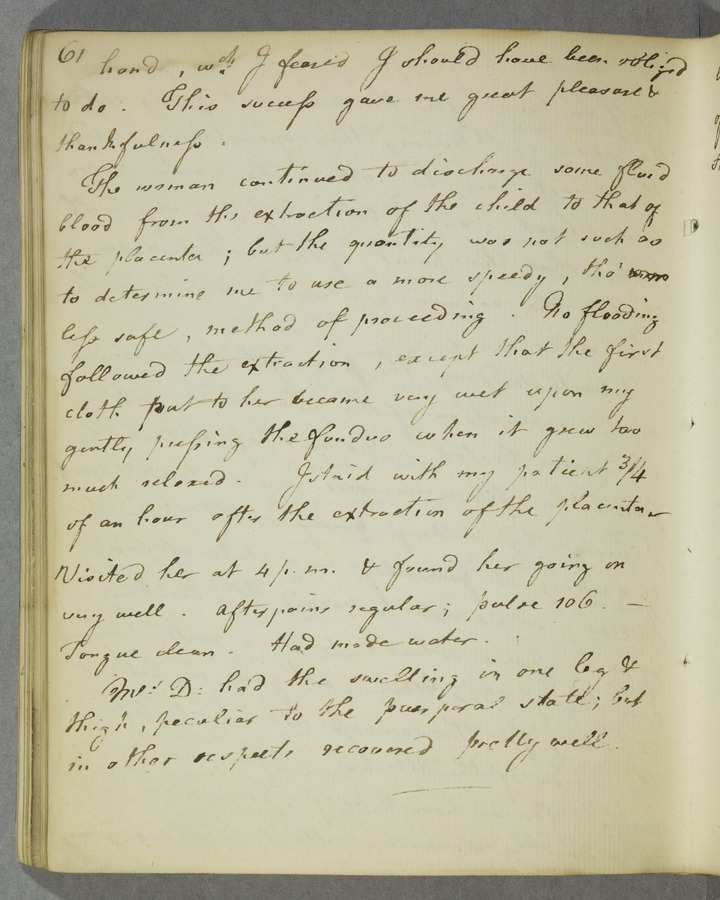 61
hand, wch. I feared I should have been obliged
to do. This success gave me great pleasure &
thankfulness.
The woman continued to discharge some fluid
blood from the extraction of the child to that of
the placenta; but the quantity was not such as
to determine me to use a more speedy, tho'
less safe, method of proceeding. No flooding
followed the extraction, except that the first
cloth put to her became very wet upon my
gently pressing the fundus when it grew too
much relaxed. I staid with my patient 3/4
of an hour after the extraction of the placenta.
Visited her at 4 p.m. & found her going on
very well. Afterpains regular; pulse 106. —
Tongue clean. Had made water.
Mrs. D: had the swelling in one leg &
thigh, peculiar to the puerperal state; but
in other respects recovered pretty well.